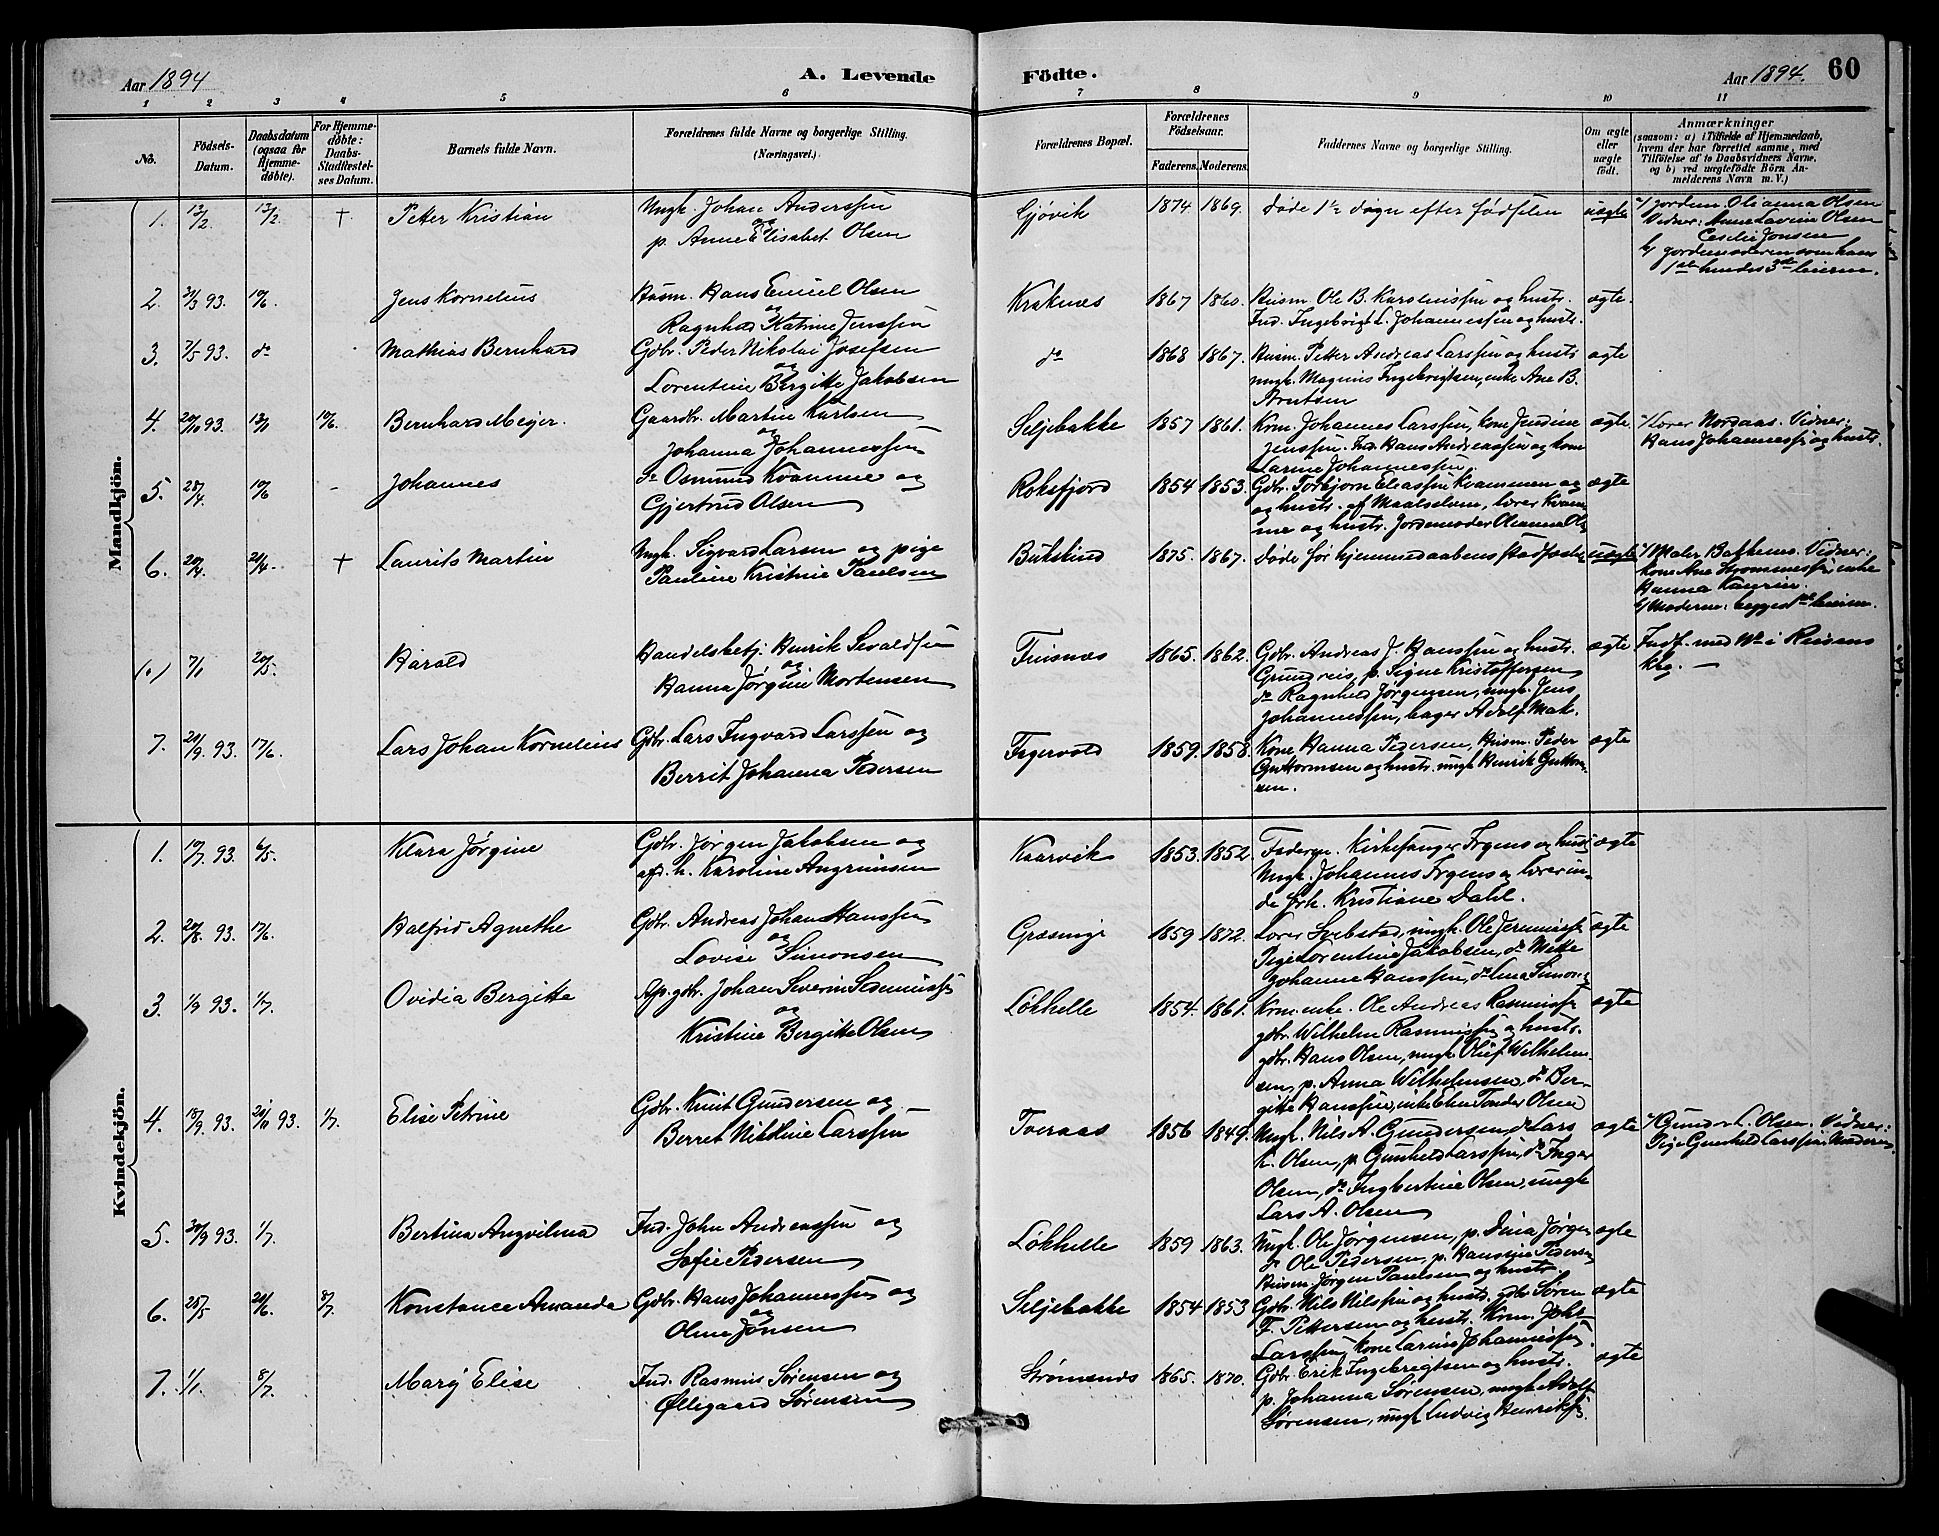 Aar 1894
A. Levende
Födte.
Aar 1894.
60
1 2 3 4 5 6 7 8 9 10 11
No.
Födsels-
Datum.
Daabsdatum
(ogsaa for
Hjemme-
döbte).
For Hjemme-
döbte:
Daabs-
Stadfæstel-
ses Datum.
Barnets fulde Navn.
Forældrenes fulde Navne og borgerlige Stilling.
(Næringsvei.)
Forældrenes Bopæl.
Forældrenes
Födselsaar.
Faderens. Moderens.
Faddernes Navne og borgerlige Stilling.
Om ægte
eller
uægte
födt.
Anmærkninger
(saasom: a) i Tilfælde af Hjemmedaab,
hvem der har forrettet samme, med
Tilföielse af to Daabsvidners Navne,
og b) ved uægtefödte Börn An-
melderens Navn m. V.)
Mandkjön.
1. 12/2. 13/2 + Petter Kristian
Ungk. Johan Anderssen
og
p. Anne Elisabet Olsen
Gjøvik 1874 1869.
døde 1½ døgn efter fødselen
uægte
a/ jordem. Olianna Olsen
Vidner: Anne Lavina Olsen
Cecilie Jonsen
b/ jordemoderen som hans
1ste hendes 3die leierm.
2. 31/3 93. 10/6. Jens Kornelius
Husm. Hans Emil Olsen
og
Ragnhild Katrine Jenssen
Kraknes 1867 1860.
Husm Ole B. Karolinssen og hustr.
Ind. Ingebrigt L. Johannessen og hustr.
ægte.
3. 7/5 93. do Mathias Bernhard
Gdbr. Peder Nikolai Josefsen
og
Lorentine Bergitte Jakobsen
do 1868 1867.
Husm. Petter Andreas Larssen og hustr
ungk. Magnus Ingebrigtsen, enke Ane B.
Arntsen
ægte
4. 20/10 93. 13/1 10/6. Bernhard Meyer.
Gaardbr. Martin Karlsen
og
Johanna Johannessen
Seljebakke 1857 1861.
Krm. Johannes Larssen, kone Jendine
Jenssen. Ind. Hans Andreassen og kone
Larine Johannessen
ægte
a/ Lærer Nordaas. Vidner:
Hans Johannessen og hustr.
5. 28/4. 10/6 - Johannes
do Osmund Kvamme og
Gjertrud Olsen
Roksfjord 1854 1853.
Gdbr. Torbjørn Eliassen Kvammen og
og hustr. af Maalselven, lærer Kvam-
me og hustr. Jordemoder Olianna Ols
ægte
6. 20/4. 21/4. + Laurits Martin
Ungk. Sigvard Larsen og pige
Pauline Kristine Paulsen
Bukskind 1875. 1867.
døde før hjemmedaabens stadfæste
uægte
a/ Maler Bakkens. Vidner:
kone Ane Strømmesen enke
Hanna
b/ Moderen: begges leierm.
(0) 7/1 20/5. Harald
Handelsbetj. Henrik Sivaldsen
og
Hanna Jørgine Mortensen
Finsnæs 1865. 1862.
Gdbr. Andreas J. Hanssen og hustr.
Grundreis, p. Signe Kristoffersen
do Ragnhild Jørgensen, ungk. Jens
Johannessen, bager Adolf Mak.
ægte
Indf. med No i Reisens
kbg. —
7. 21/9. 93. 17/6. Lars Johan Kornelius
Gdbr. Lars Ingvard Larssen og
Berrit Johanna Pedersen
Fagervold 1859. 1858.
Kone Hanna Pedersen, Husm. Peder
Guttormsen og hustr. ungk Henrik Guttorm-
sen.
ægte
Kvindekjön.
1. 10/7. 93. 6/5. Klara Jørgine
Gdbr. Jørgen Jakobsen og
afd. h. Karoline Angrimsen
Kaarvik 1853. 1852.
Faderen. Kirkesanger Irgens og hust
Ungk. Johannes Irgens og lærerin-
de frk. Kristiane Dahl.
ægte
2. 20/8. 93. 17/6. Halfrid Agnethe
Gdbr. Andreas Johan Hanssen
og
Lovise Simonsen
Græsmyr 1859 1872.
Lærer Svebstad, ungk. Ole Jeremiassen
Pige Lorentine Jakobsen, do Mette
Johanne Hanssen, do Lina Simons
ægte
3. 1/9 93. 1/7. Ovidia Bergitte
Ap. gdbr. Johan Severin
og
Kristine Bergitte Olsen
Løkhelle 1854. 1861.
Krm. enke. Ole Andreas Rasmussen
gdbr. Wilhelm Rasmussen og hustr.
gdbr. Hans Olsen, ungk Oluf Wilhelm-
sen, p. Anna Wilhelmsen, do Ber-
gitte Hanssen, enke Elen Tonder Olsen
ægte
4. 15/9. 93. 20/10 93. 1/7. Elise Petrine
Gdbr. Knut Gundersen og
Berret Nikoline Larssen
Tveraas 1856 1849.
Ungk. Nils A. Gundersen, do Lars
L. Olsen, p Gunhild Larssen, do Inger
Olsen, do Ingbertine Olsen, ungk
Lars A. Olsen
ægte
a/ Gunder L. Olsen. Vidner:
Pige Gunhild Larssen, Moderen.
5. 30/9 93. 1/7. Bertina Angvilma
Ind. John Andreassen og
Sofie Pedersen
Løkhelle 1859 1863.
Ungk. Ole Jørgensen, p. Dina Jørgen
do Ole Pedersen, p. Hansine Pedersen
Husm. Jørgen Paulsen og hustr.
ægte
6. 25/5 20/6. 8/7. Konstance Amanda
Gdbr. Hans Johannessen og
og
Oline Jonsen
Seljebakke 1854 1853
Gdbr. Nils Nilssen og hustr. gdbr. Søren
F. Pettersen og hustr. Krm. Johs
Larssen, kone Larine Johannessen
ægte
7. 1/1. 8/7. Mary Elise
Ind. Rasmus Sørensen og
Øllegaard Sørensen
Strømsnæs 1865. 1870.
Gdbr. Erik Ingebrigtsen og hustr.
p. Johanna Sørensen, ungk Adolf
Sørensen, ungk Ludvig Henriksen.
ægte